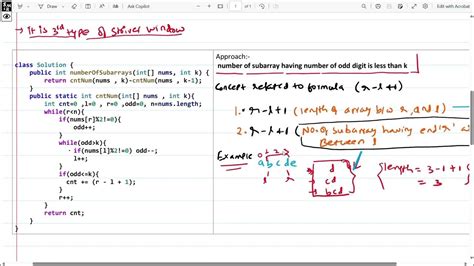 Ask Copilot
Edit with Acrobat
→ It is 3rd type of striver window
class Solution {
public int numberOfSubarrays(int[] nums , int k) {
return cntNum(nums , k)-cntNum(nums , k-1);
}
public static int cntNum(int[] nums , int k){
int cnt=0 ,l=0 , r=0 ,odd=0, n=nums.length;
while(r<n){
if(nums[r]%2!=0){
odd++;
}
while(odd>k){
if(nums[l]%2!=0) odd--;
l++;
}
if(odd<=k){
cnt += (r - l + 1);
}
r++;
}
return cnt;
}
}
Approach:-
number of subarray having number of odd digit is less than k
Concept related to formula (r-l+1)
1. r-l+1 (length of array b/w r, and l)
2. r-l+1 (No. of subarray having end 'r'
Between l
Example
0 1 2 3
a b c d e
l r
d
cd
bcd
length = 3-1+1
= 3